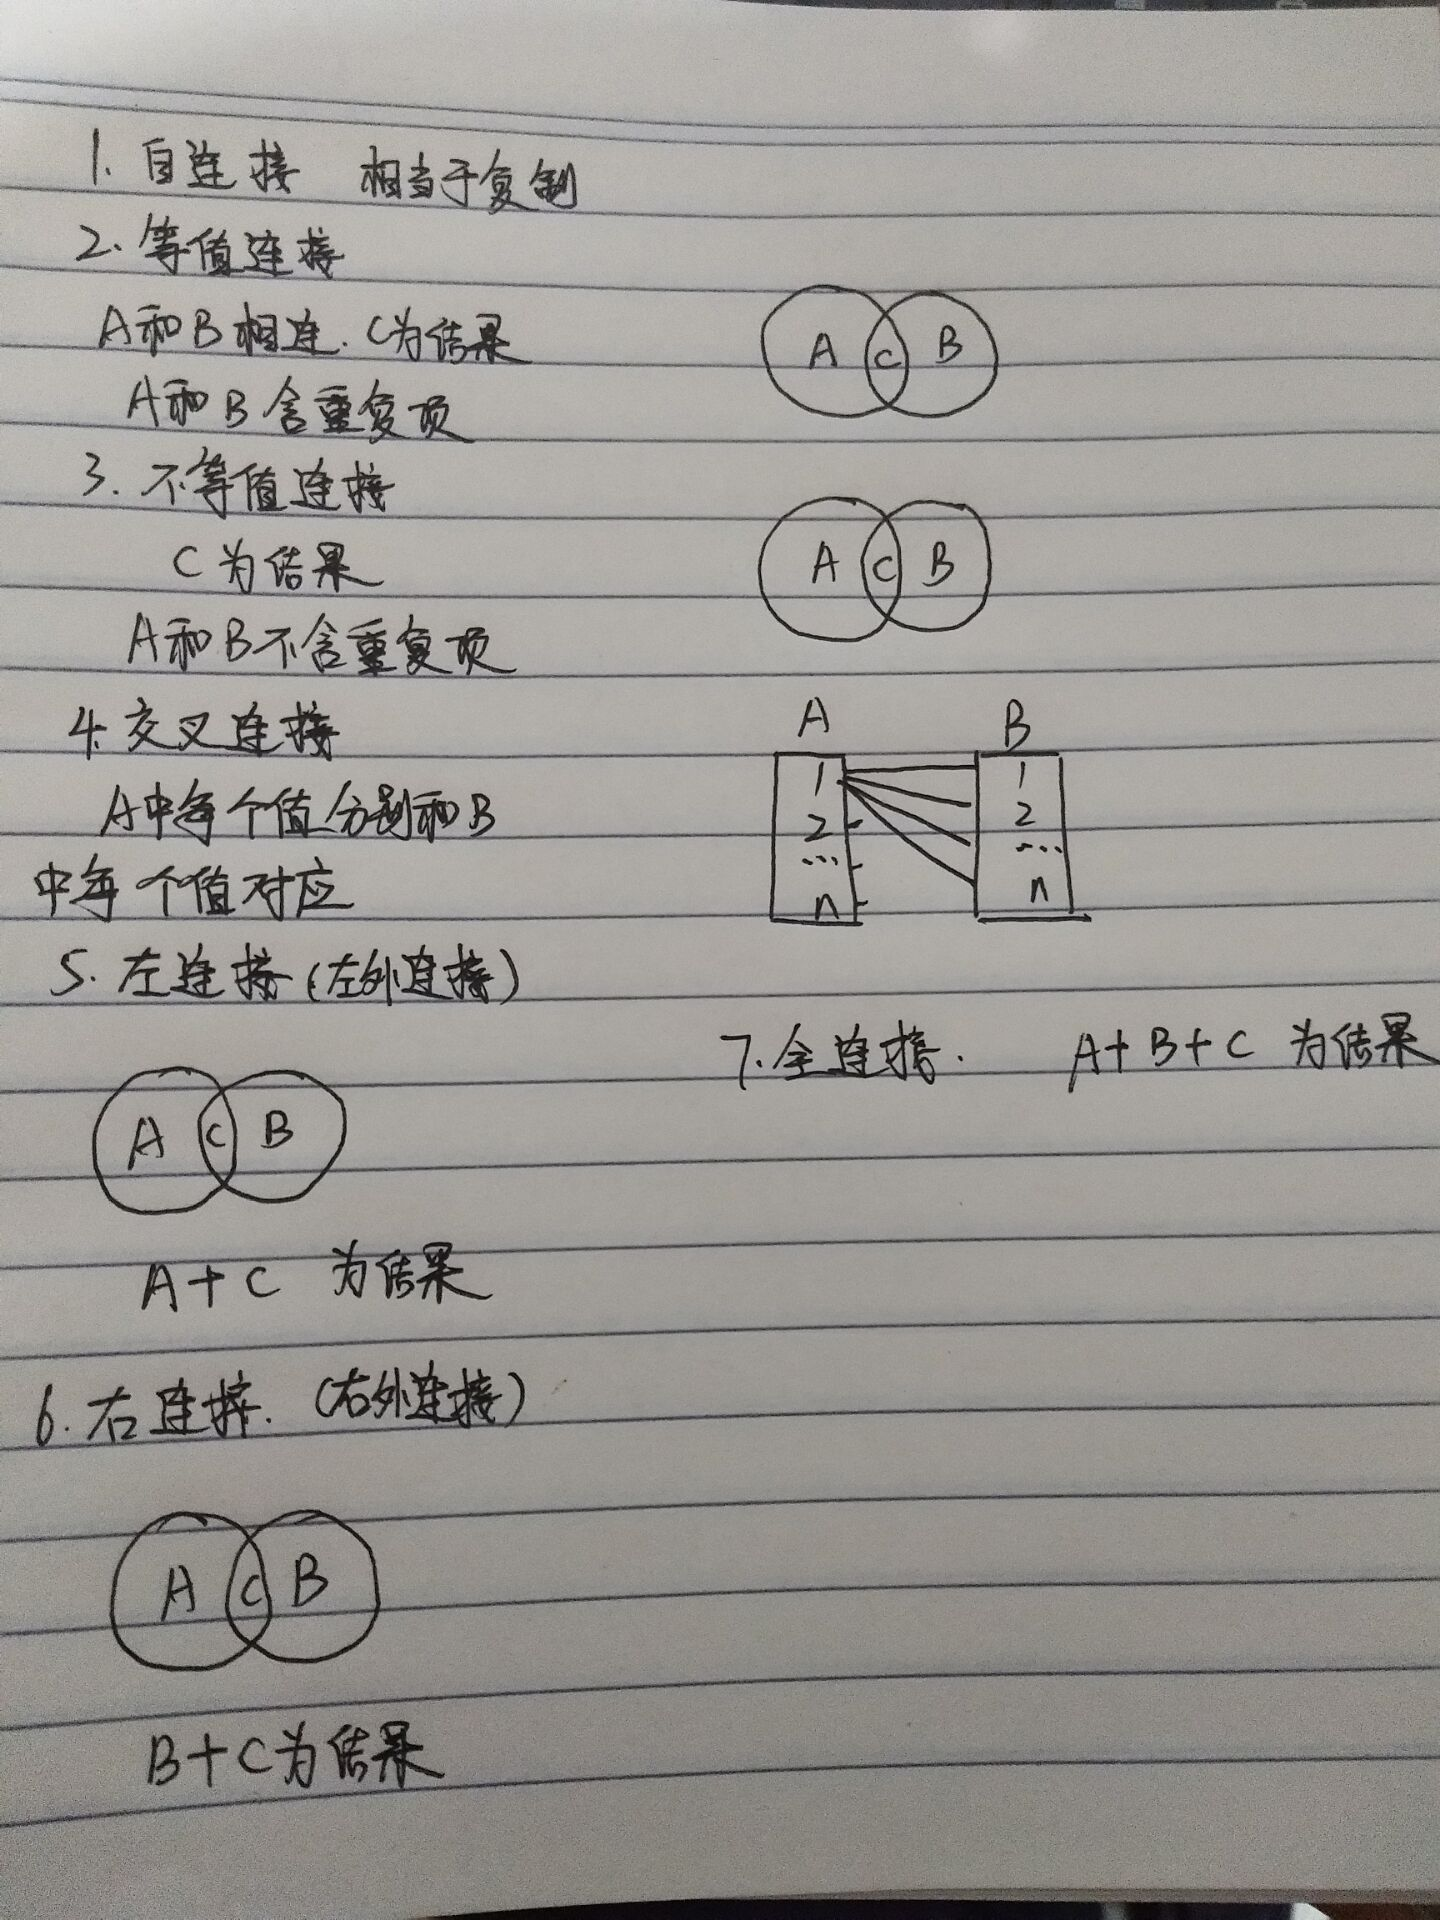 1. 自连接 相当于复制
2. 等值连接
A和B相连. C为结果
A C B
A和B含重复项
3. 不等值连接
C为结果
A C B
A和B不含重复项
4. 交叉连接
A B
A中每个值分别和B
中每个值对应
1 1
2 2
... ...
n n
5. 左连接(左外连接)
A C B
A+C 为结果
6. 右连接. (右外连接)
A C B
B+C为结果
7. 全连接. A+B+C 为结果